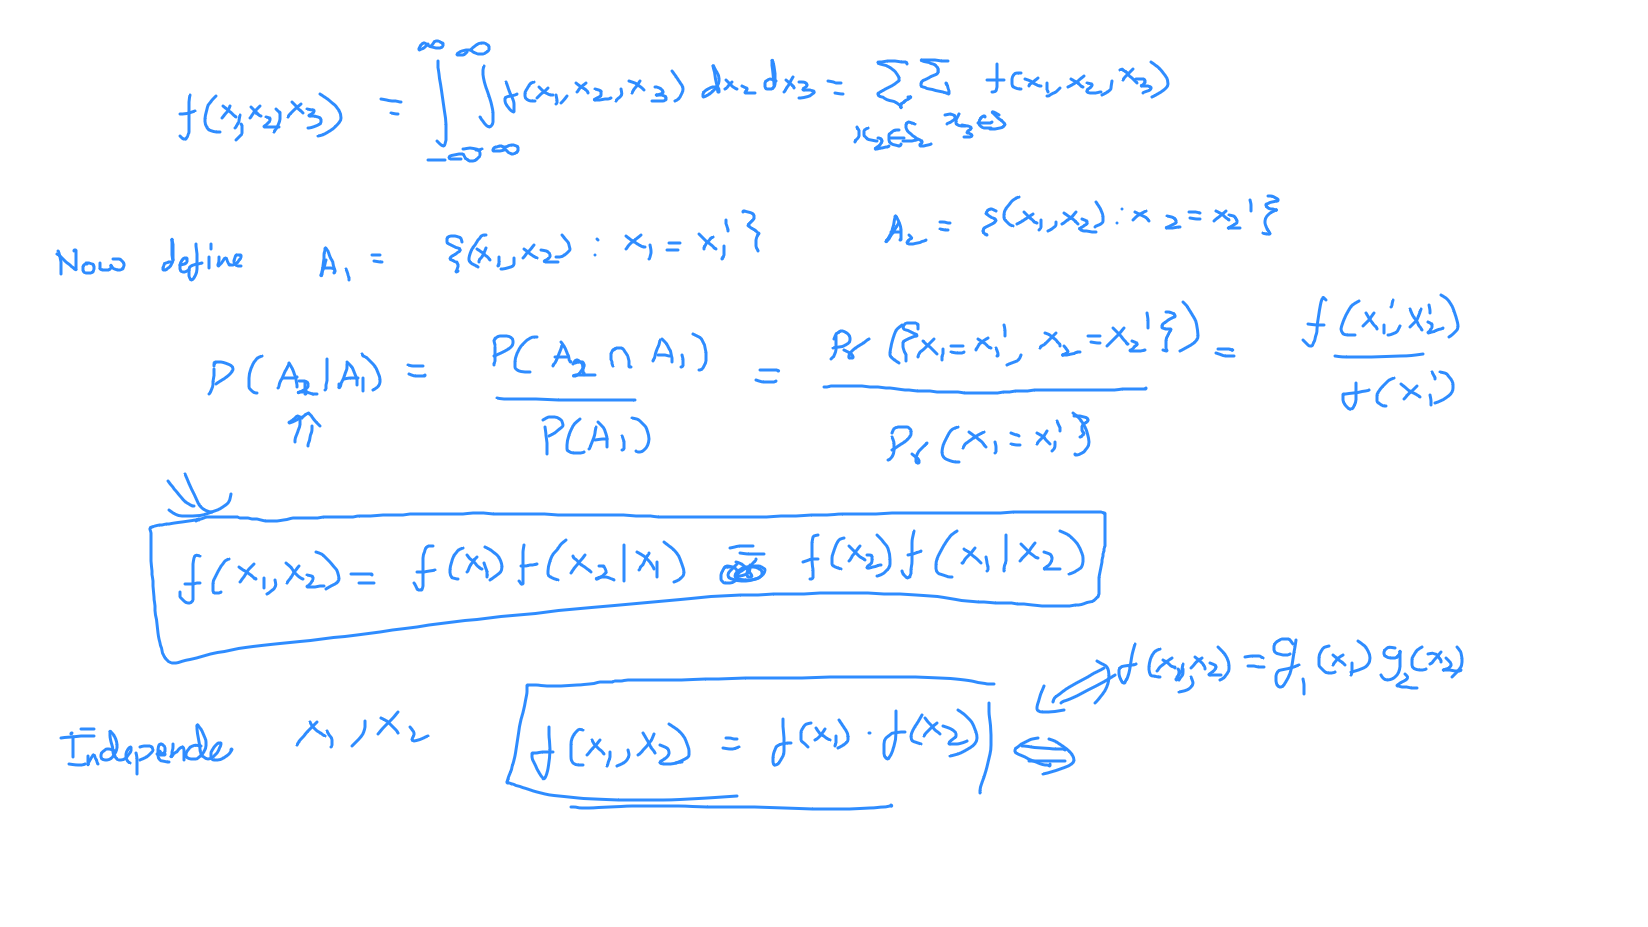 f(x₁,x₂,x₃) = ∫_{-∞}^{∞} ∫_{-∞}^{∞} f(x₁,x₂,x₃) dx₂ dx₃ = Σ_{x₂∈S₂} Σ_{x₃∈S} f(x₁,x₂,x₃)
Now define A₁ = {(x₁,x₂) : x₁ = x₁'} A₂ = {(x₁,x₂) : x₂ = x₂'}
P(A₂|A₁) = P(A₂ ∩ A₁) / P(A₁) = Pr({x₁=x₁', x₂=x₂'}) / Pr(x₁=x₁'} = f(x₁',x₂') / f(x₁')
f(x₁,x₂) = f(x₁) f(x₂|x₁) = f(x₂) f(x₁|x₂)
Independe x₁, x₂ f(x₁,x₂) = f(x₁)·f(x₂) ⇔ f(x₁,x₂) = g₁(x₁) g₂(x₂)